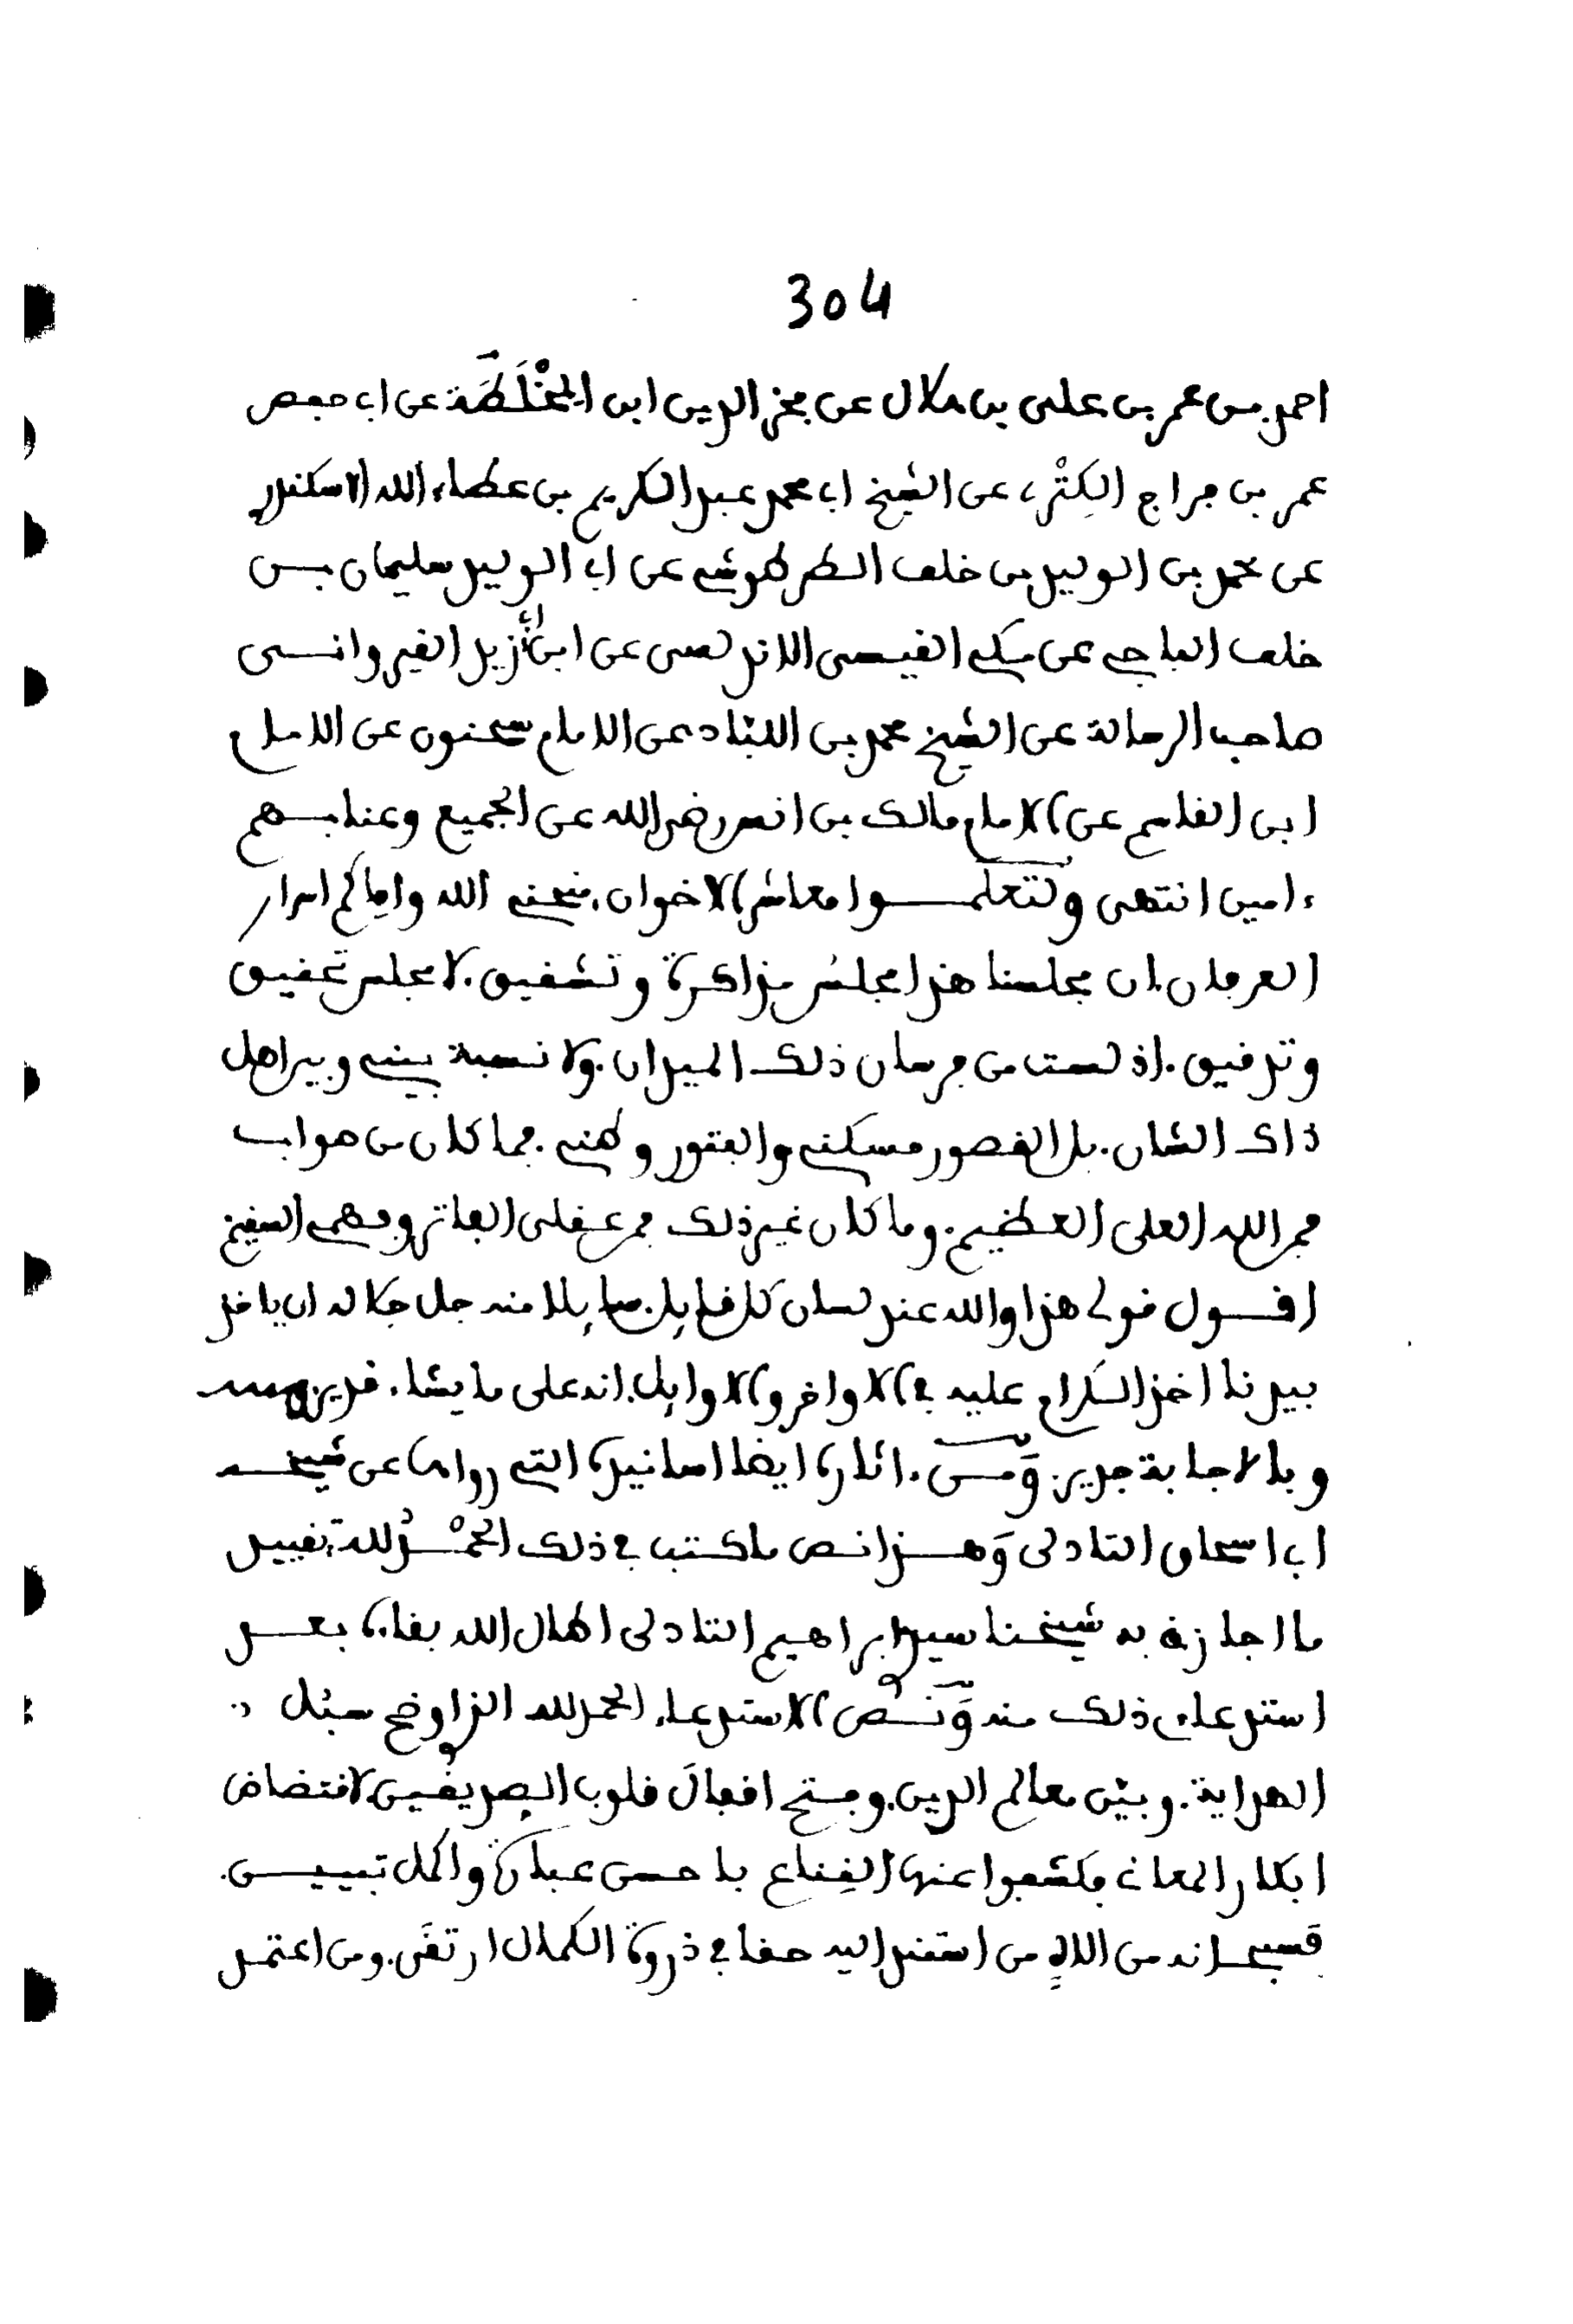 304
احمد بن عمر بن علي بن هلال عن فخر الدين ابن المخْلَطَة عن ابي حفص
عمر بن فراج الكِنْدِي عن الشيخ ابي محمد عبد الكريم بن عطاء الله الاسكندري
عن محمد بن الوليد بن خلف الطرطوشي عن ابي الوليد سليمان بن
خلف الباجي عن مكي القيسي الاندلسي عن ابن أبي زيد القيرواني
صاحب الرسالة عن الشيخ محمد بن اللبّاد عن الامام سحنون عن الامام
ابن القاسم عن الامام مالك بن انس رضي الله عن الجميع وعنا بهم
ءامين انتهى ولتعلموا معاشر الاخوان، منحني الله واياكم اسرار
العرفان، ان مجلسنا هذا مجلس مذاكرة وتشفيق. لا مجلس تحقيق
وتدقيق. اذ لست من فرسان ذلك الميدان. ولا نسبة بيني وبين اهل
ذاك الشان. بل القصور مسكني والفتور وطني. فما كان من صواب
فمن الله العلي العظيم. وما كان غير ذلك فمن عقلي الفاتر وفهمي السقيم
اقول قولي هذا والله عند لسان كل قايل. سايلا منه جل جلاله ان ياخذ
بيدنا اخذ الكرام عليه في الاواخر والاوايل. انه على ما يشاء قدير
وبالاجابة جدير. وَمن ءاثاره ايضا اسانيده التي رواها عن شيخه
ابي اسحاق التادلي وَهذا نص ما كتب في ذلك الحمْدُ لله تقييد
ما اجازني به شيخنا سيدي ابراهيم التادلي اطال الله بقاءه بعد
استدعاءي ذلك منه وَنَصُّ الاستدعاء الحمد لله الذي اوضح سبل
الهداية. وبيّن معالم الدين. وفتح اقفالَ قلوب الصديقين لاقتضاض
ابكار المعاني فكشفوا عنها القِناع باحسن عبارة واكمل تبيين.
فسبحانه من الاه من استند اليه حقا في ذروة الكمال ارتقَى. ومن اعتمد